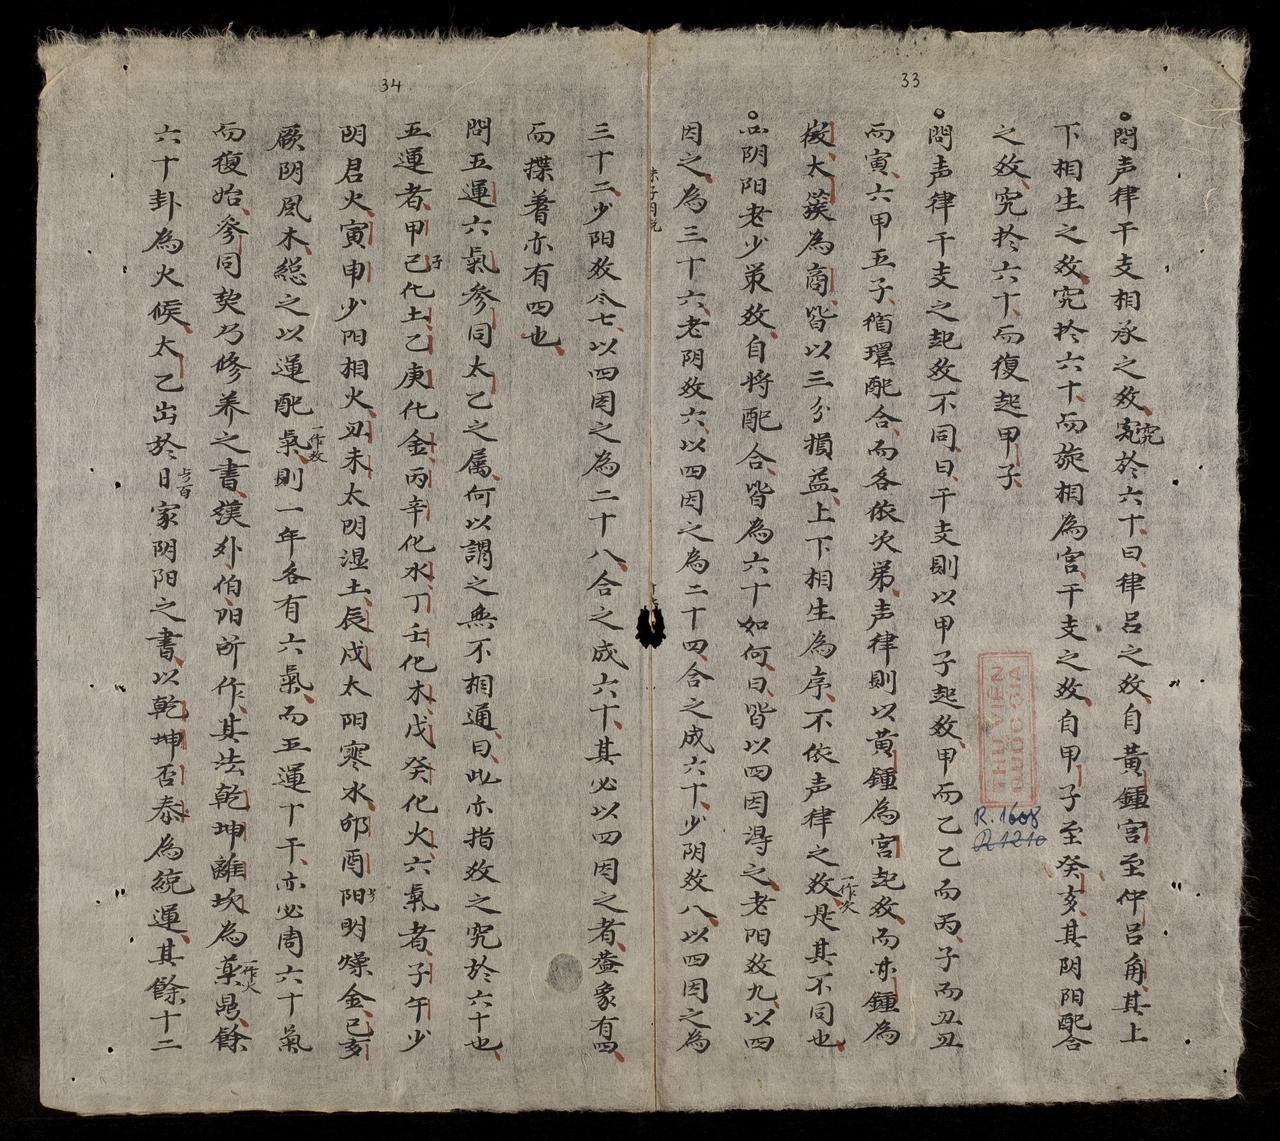 33
問声律干支相承之效究於六十曰律呂之效自黃鍾宮至仲呂角其上
究
下相生之效究扵六十而旋相為宮干支之效自甲子至癸亥其阴阳配合
之效究扵六十而復起甲子
問声律干支之起效不同曰干支則以甲子起效甲而乙乙而丙子而丑丑
而寅六甲五子循環配合而各依次第声律則以黃鍾為宮起效而亦鍾為
徵太簇為商皆以三分損益上下相生為序不依声律之效是其不同也
一作次
问阴阳老少策效自將配合皆為六十如何曰皆以四因得之老阳效九以四
因之為三十六老阴效六以四因之為二十四合之成六十少阴效八以四因之為
THU VIEN
QUOC GIA
R.1608
R 1210
34
三十二少阳效七以四因之為二十八合之成六十其必以四因之者蓋象有四
而揲蓍亦有四也
問五運六氣參同太乙之属何以謂之無不相通曰此亦指效之究於六十也
五運者甲己化土乙庚化金丙辛化水丁壬化木戊癸化火六氣者子午少
子
阴君火寅申少阳相火丑未太阴湿土辰戌太阳寒水卯酉阳明燥金己亥
厥阴風木総之以運配氣則一年各有六氣而五運十干亦必周六十氣
一作效
而復始參同契乃修养之書漢外伯阳所作其法乾坤離坎為藥鼎餘
一作火
六十卦為火候太乙出於日家阴阳之書以乾坤否泰為統運其餘十二